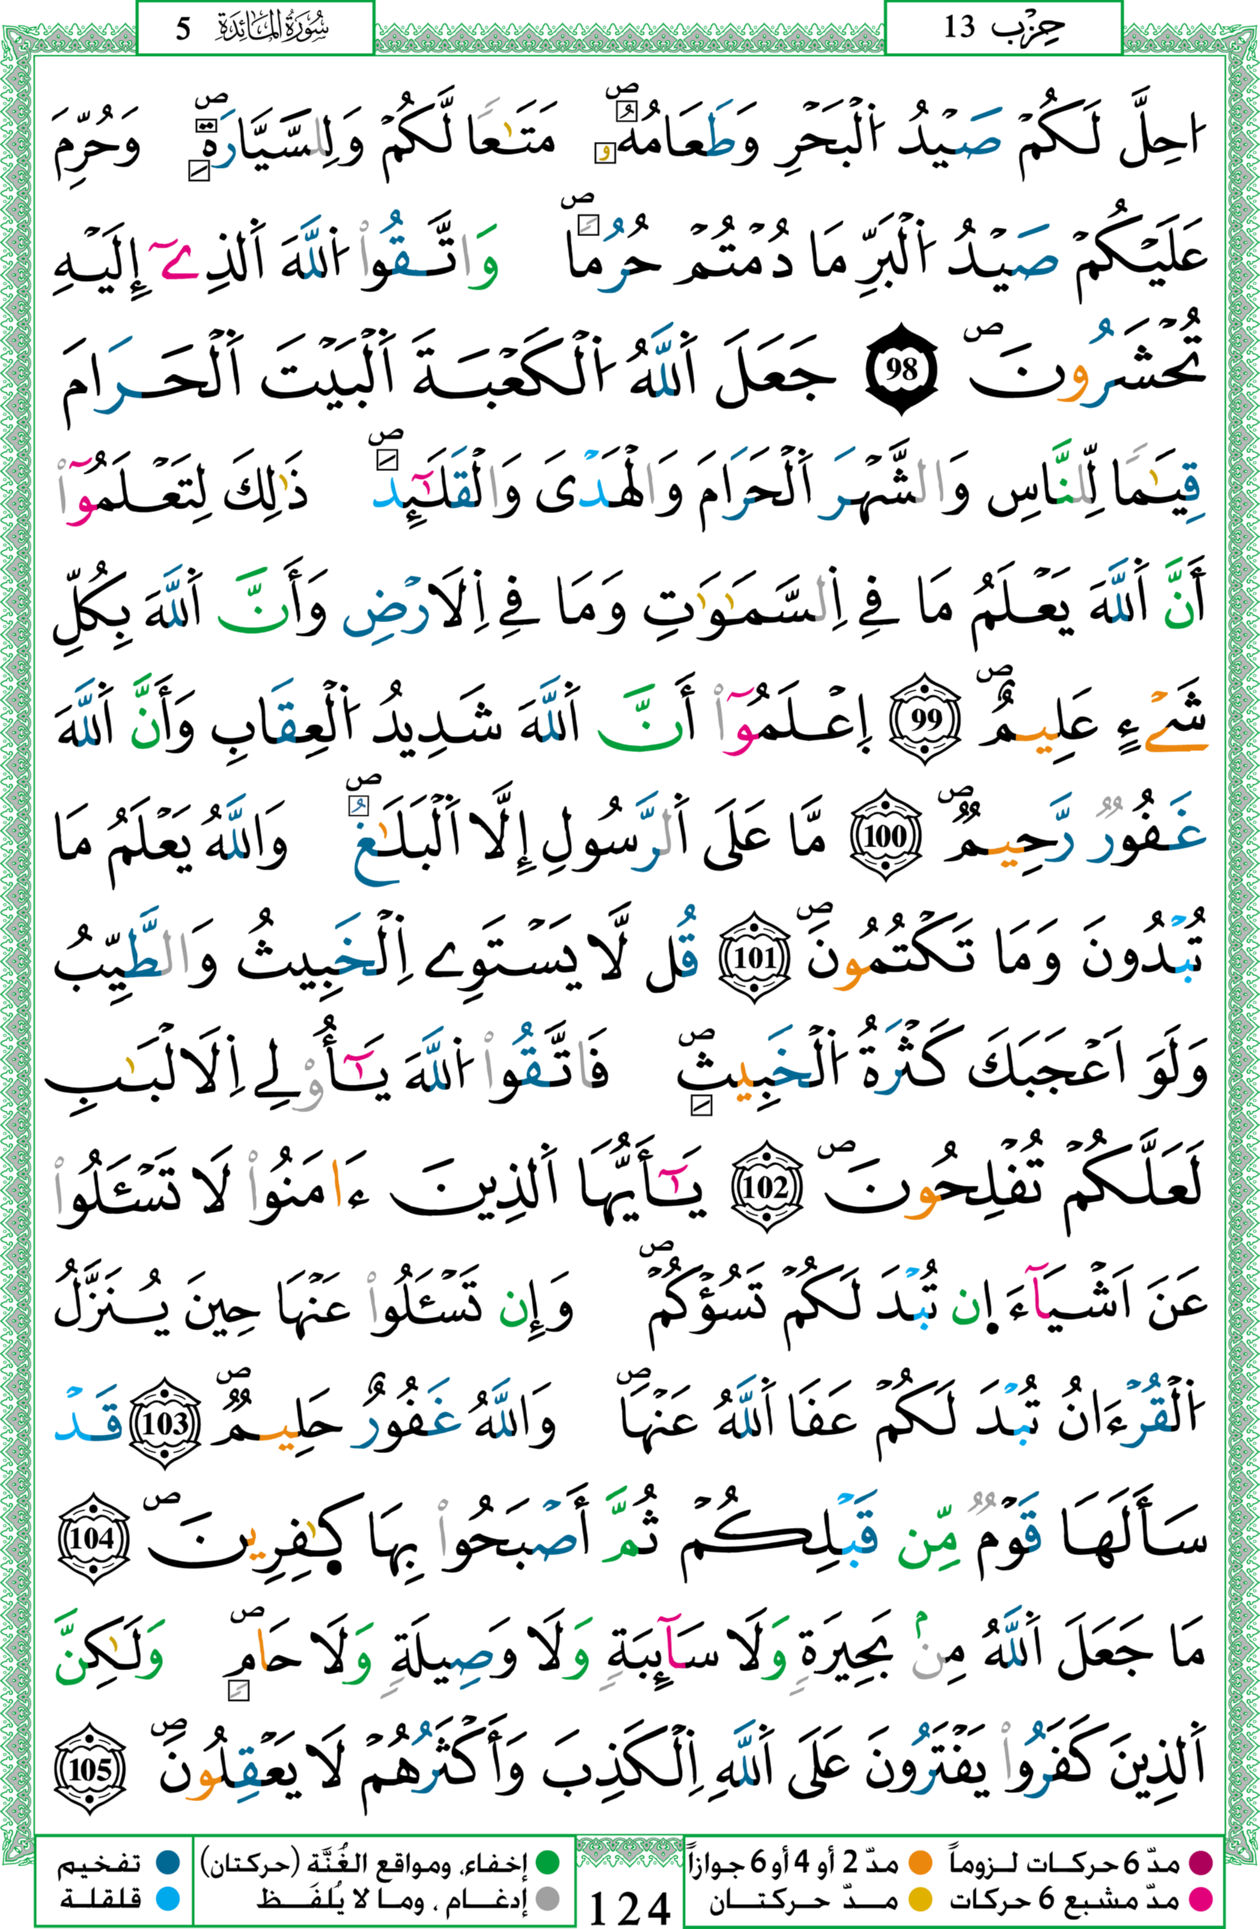 حِزْب 13
سُورَةُ المَائِدَة 5
اُحِلَّ لَكُمْ صَيْدُ اُ۬لْبَحْرِ وَطَعَامُهُۥ مَتَٰعاٗ لَّكُمْ وَلِلسَّيَّارَةِۖ وَحُرِّمَ
عَلَيْكُمْ صَيْدُ اُ۬لْبَرِّ مَا دُمْتُمْ حُرُماٗۖ وَاتَّقُواْ اُ۬للَّهَ اَ۬لذِےٓ إِلَيْهِ
تُحْشَرُونَۖ 98 جَعَلَ اَ۬للَّهُ اُ۬لْكَعْبَةَ اَ۬لْبَيْتَ اَ۬لْحَرَامَ
قِيَٰماٗ لِّلنَّاسِ وَالشَّهْرَ اَ۬لْحَرَامَ وَالْهَدْيَ وَالْقَلَٰٓئِدَۖ ذَٰلِكَ لِتَعْلَمُوٓاْ
أَنَّ اَ۬للَّهَ يَعْلَمُ مَا فِے اِ۬لسَّمَٰوَٰتِ وَمَا فِے اِ۬لَارْضِ وَأَنَّ اَ۬للَّهَ بِكُلِّ
شَےْءٍ عَلِيمٌۖ 99 اِعْلَمُوٓاْ أَنَّ اَ۬للَّهَ شَدِيدُ اُ۬لْعِقَابِ وَأَنَّ اَ۬للَّهَ
غَفُورٞ رَّحِيمٞۖ 100 مَّا عَلَى اَ۬لرَّسُولِ إِلَّا اَ۬لْبَلَٰغُۖ وَاللَّهُ يَعْلَمُ مَا
تُبْدُونَ وَمَا تَكْتُمُونَۖ 101 قُل لَّا يَسْتَوِے اِ۬لْخَبِيثُ وَالطَّيِّبُ
وَلَوَ اَعْجَبَكَ كَثْرَةُ اُ۬لْخَبِيثِۖ فَاتَّقُواْ اُ۬للَّهَ يَٰٓأُوْلِے اِ۬لَالْبَٰبِ
لَعَلَّكُمْ تُفْلِحُونَۖ 102 يَٰٓأَيُّهَا اَ۬لذِينَ ءَامَنُواْ لَا تَسْـَٔلُواْ
عَنَ اَشْيَآءَ ا۪ن تُبْدَ لَكُمْ تَسُؤْكُمْۖ وَإِن تَسْـَٔلُواْ عَنْهَا حِينَ يُنَزَّلُ
اُ۬لْقُرْءَانُ تُبْدَ لَكُمْ عَفَا اَ۬للَّهُ عَنْهَاۖ وَاللَّهُ غَفُورٌ حَلِيمٞۖ 103 قَدْ
سَأَلَهَا قَوْمٞ مِّن قَبْلِكُمْ ثُمَّ أَصْبَحُواْ بِهَا كٰ۪فِرِينَۖ 104
مَا جَعَلَ اَ۬للَّهُ مِنۢ بَحِيرَةٖ وَلَا سَآئِبَةٖ وَلَا وَصِيلَةٖ وَلَا حَامٖۖ وَلَٰكِنَّ
اَ۬لذِينَ كَفَرُواْ يَفْتَرُونَ عَلَى اَ۬للَّهِ اِ۬لْكَذِبَ وَأَكْثَرُهُمْ لَا يَعْقِلُونَۖ 105
مدّ 6 حركات لـزوماً مدّ 2 أو 4 أو 6 جوازاً
مدّ مشبع 6 حركات مدّ حركتـان
إخفاء، ومواقع الغُنَّة (حركتان) تفخيم
إدغام، وما لا يُلفَظ قلقلة
124